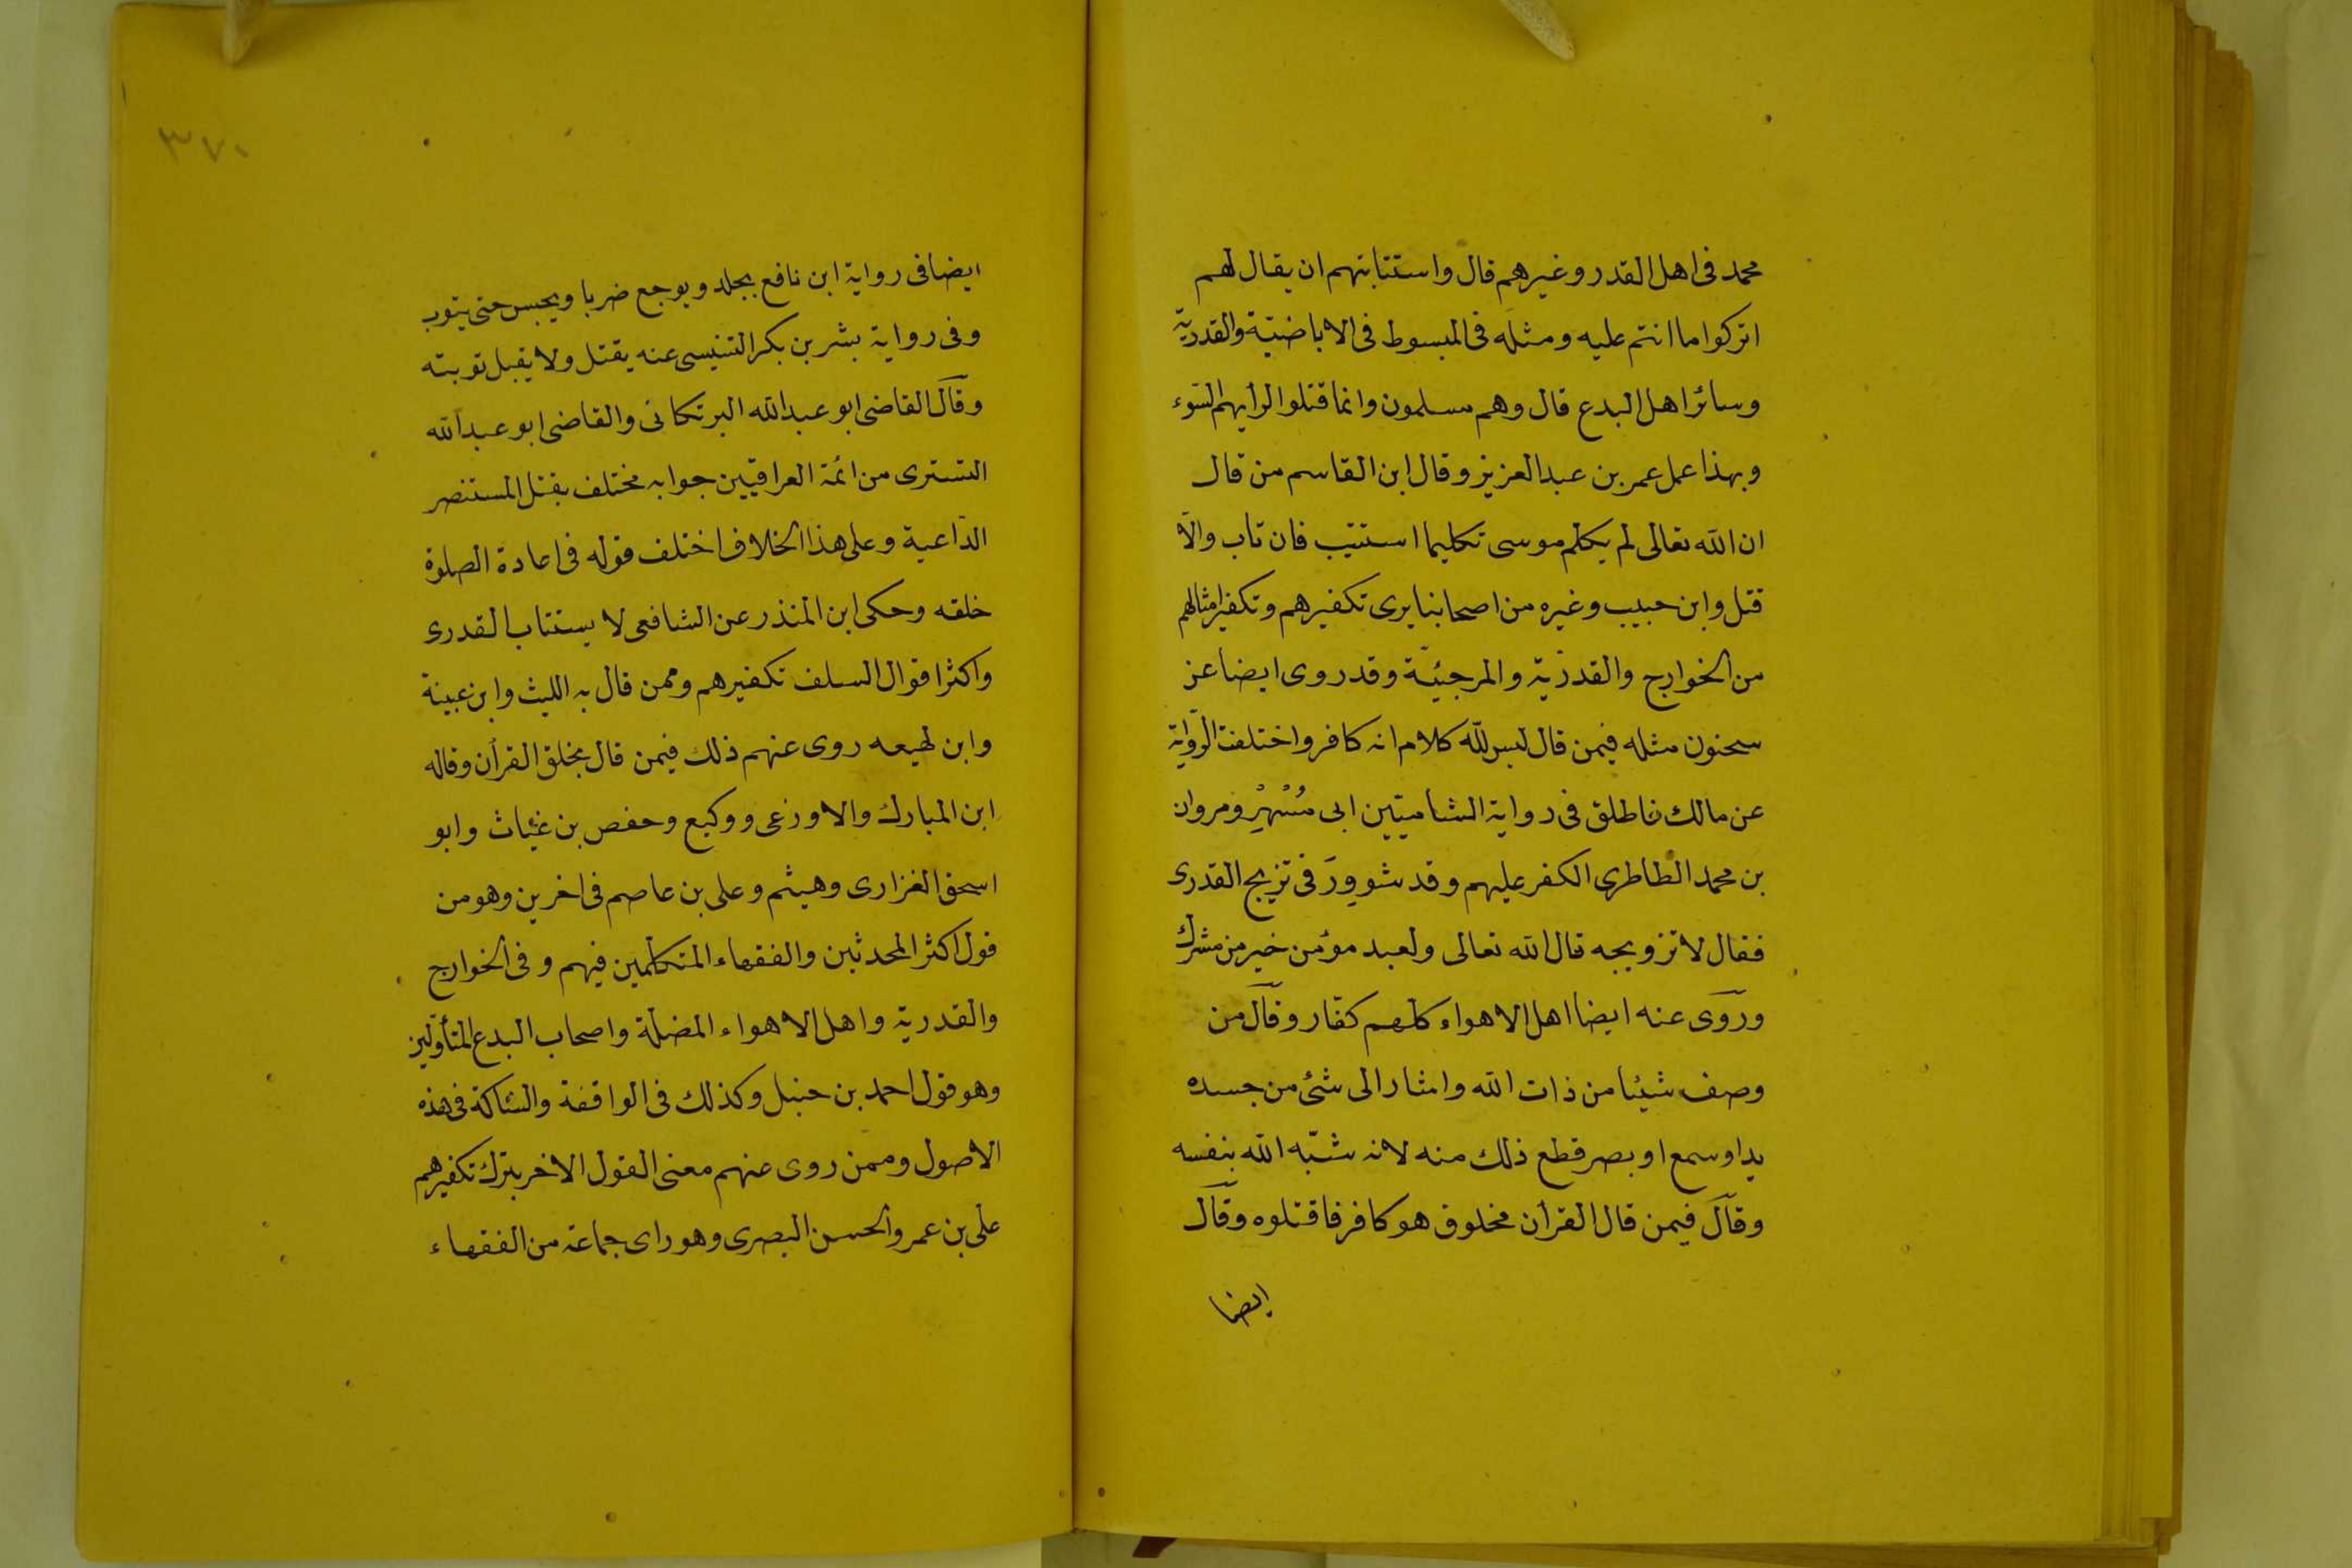 محمد فى اهل القدر وغيرهم قال واستتابتهم ان يقال لهم
اتركوا ما انتم عليه ومثله فى المبسوط فى الاباضيّة والقدريّة
وسائر اهل البدع قال وهم مسلمون وانما قتلوا لرأيهم السّوء
وبهذا عمل عمر بن عبد العزيز وقال ابن القاسم من قال
ان الله تعالى لم يكلم موسى تكليما استتيب فان تاب والّا
قتل وابن حبيب وغيره من اصحابنا يرى تكفيرهم وتكفير امثالهم
من الخوارج والقدرّية والمرجئيّة وقد روى ايضا عن
سحنون مثله فيمن قال ليس للّه كلام انه كافر واختلفت الرّواية
عن مالك فاطلق فى رواية الشاميّين ابى مُسْهِرْ ومروان
بن محمد الطاطرى الكفر عليهم وقد شوورَ فى تزيج القدرى
فقال لا تزويجه قال الله تعالى ولعبد مؤمن خير من مشرك
وروى عنه ايضا اهل الاهواء كلهم كفّار وقال من
وصف شيئا من ذات الله واشار الى شئ من جسده
يد او سمع او بصر قطع ذلك منه لانه شبّه الله بنفسه
وقال فيمن قال القرأن مخلوق هو كافر فاقتلوه وقال
ايضا
٣٧٠
ايضا فى رواية ابن نافع يجلد ويوجع ضربا ويحبس حتى يتوب
وفى رواية بشر بن بكر التنيسى عنه يقتل ولا يقبل توبته
وقال القاضى ابو عبد الله البرتكانى والقاضى ابو عبد الله
التسترى من ائمة العراقيّين جوابه مختلف بقتل المستنصر
الدّاعية وعلى هذا الخلاف اختلف قوله فى اعادة الصلوة
خلقه وحكى ابن المنذر عن الشافعى لا يستتاب القدرى
واكثر اقوال السلف تكفيرهم وممن قال به الليث وابن عيينة
وابن لهيعه روى عنهم ذلك فيمن قال بخلق القرأن وقاله
ابن المبارك والاوزعى ووكيع وحفص بن غياث وابو
اسحق الفزارى وهيثم وعلى بن عاصم فى اخرين وهو من
قول اكثر المحدثين والفقهاء المتكلّمين فيهم وفى الخوارج
والقدرية واهل الاهواء المضلّة واصحاب البدع المتأوّلين
وهو قول احمد بن حنبل وكذلك فى الواقفة والشاكة فى هذه
الاصول وممن روى عنهم معنى القول الاخر بترك تكفيرهم
على بن عمر والحسن البصرى وهو راى جماعة من الفقهاء